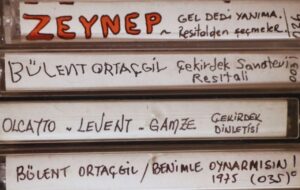 ZEYNEP GEL DEDİ YANIMA.
~ Resitalden seçmeler
BÜLENT ORTAÇGİL Çekirdek Sanatevi
Resitali
OLCAYTO - LEVENT - GAMZE ÇEKİRDEK
DİNLETİSİ
BÜLENT ORTAÇGİL / BENİMLE OYNARMISIN!
1975 (035)